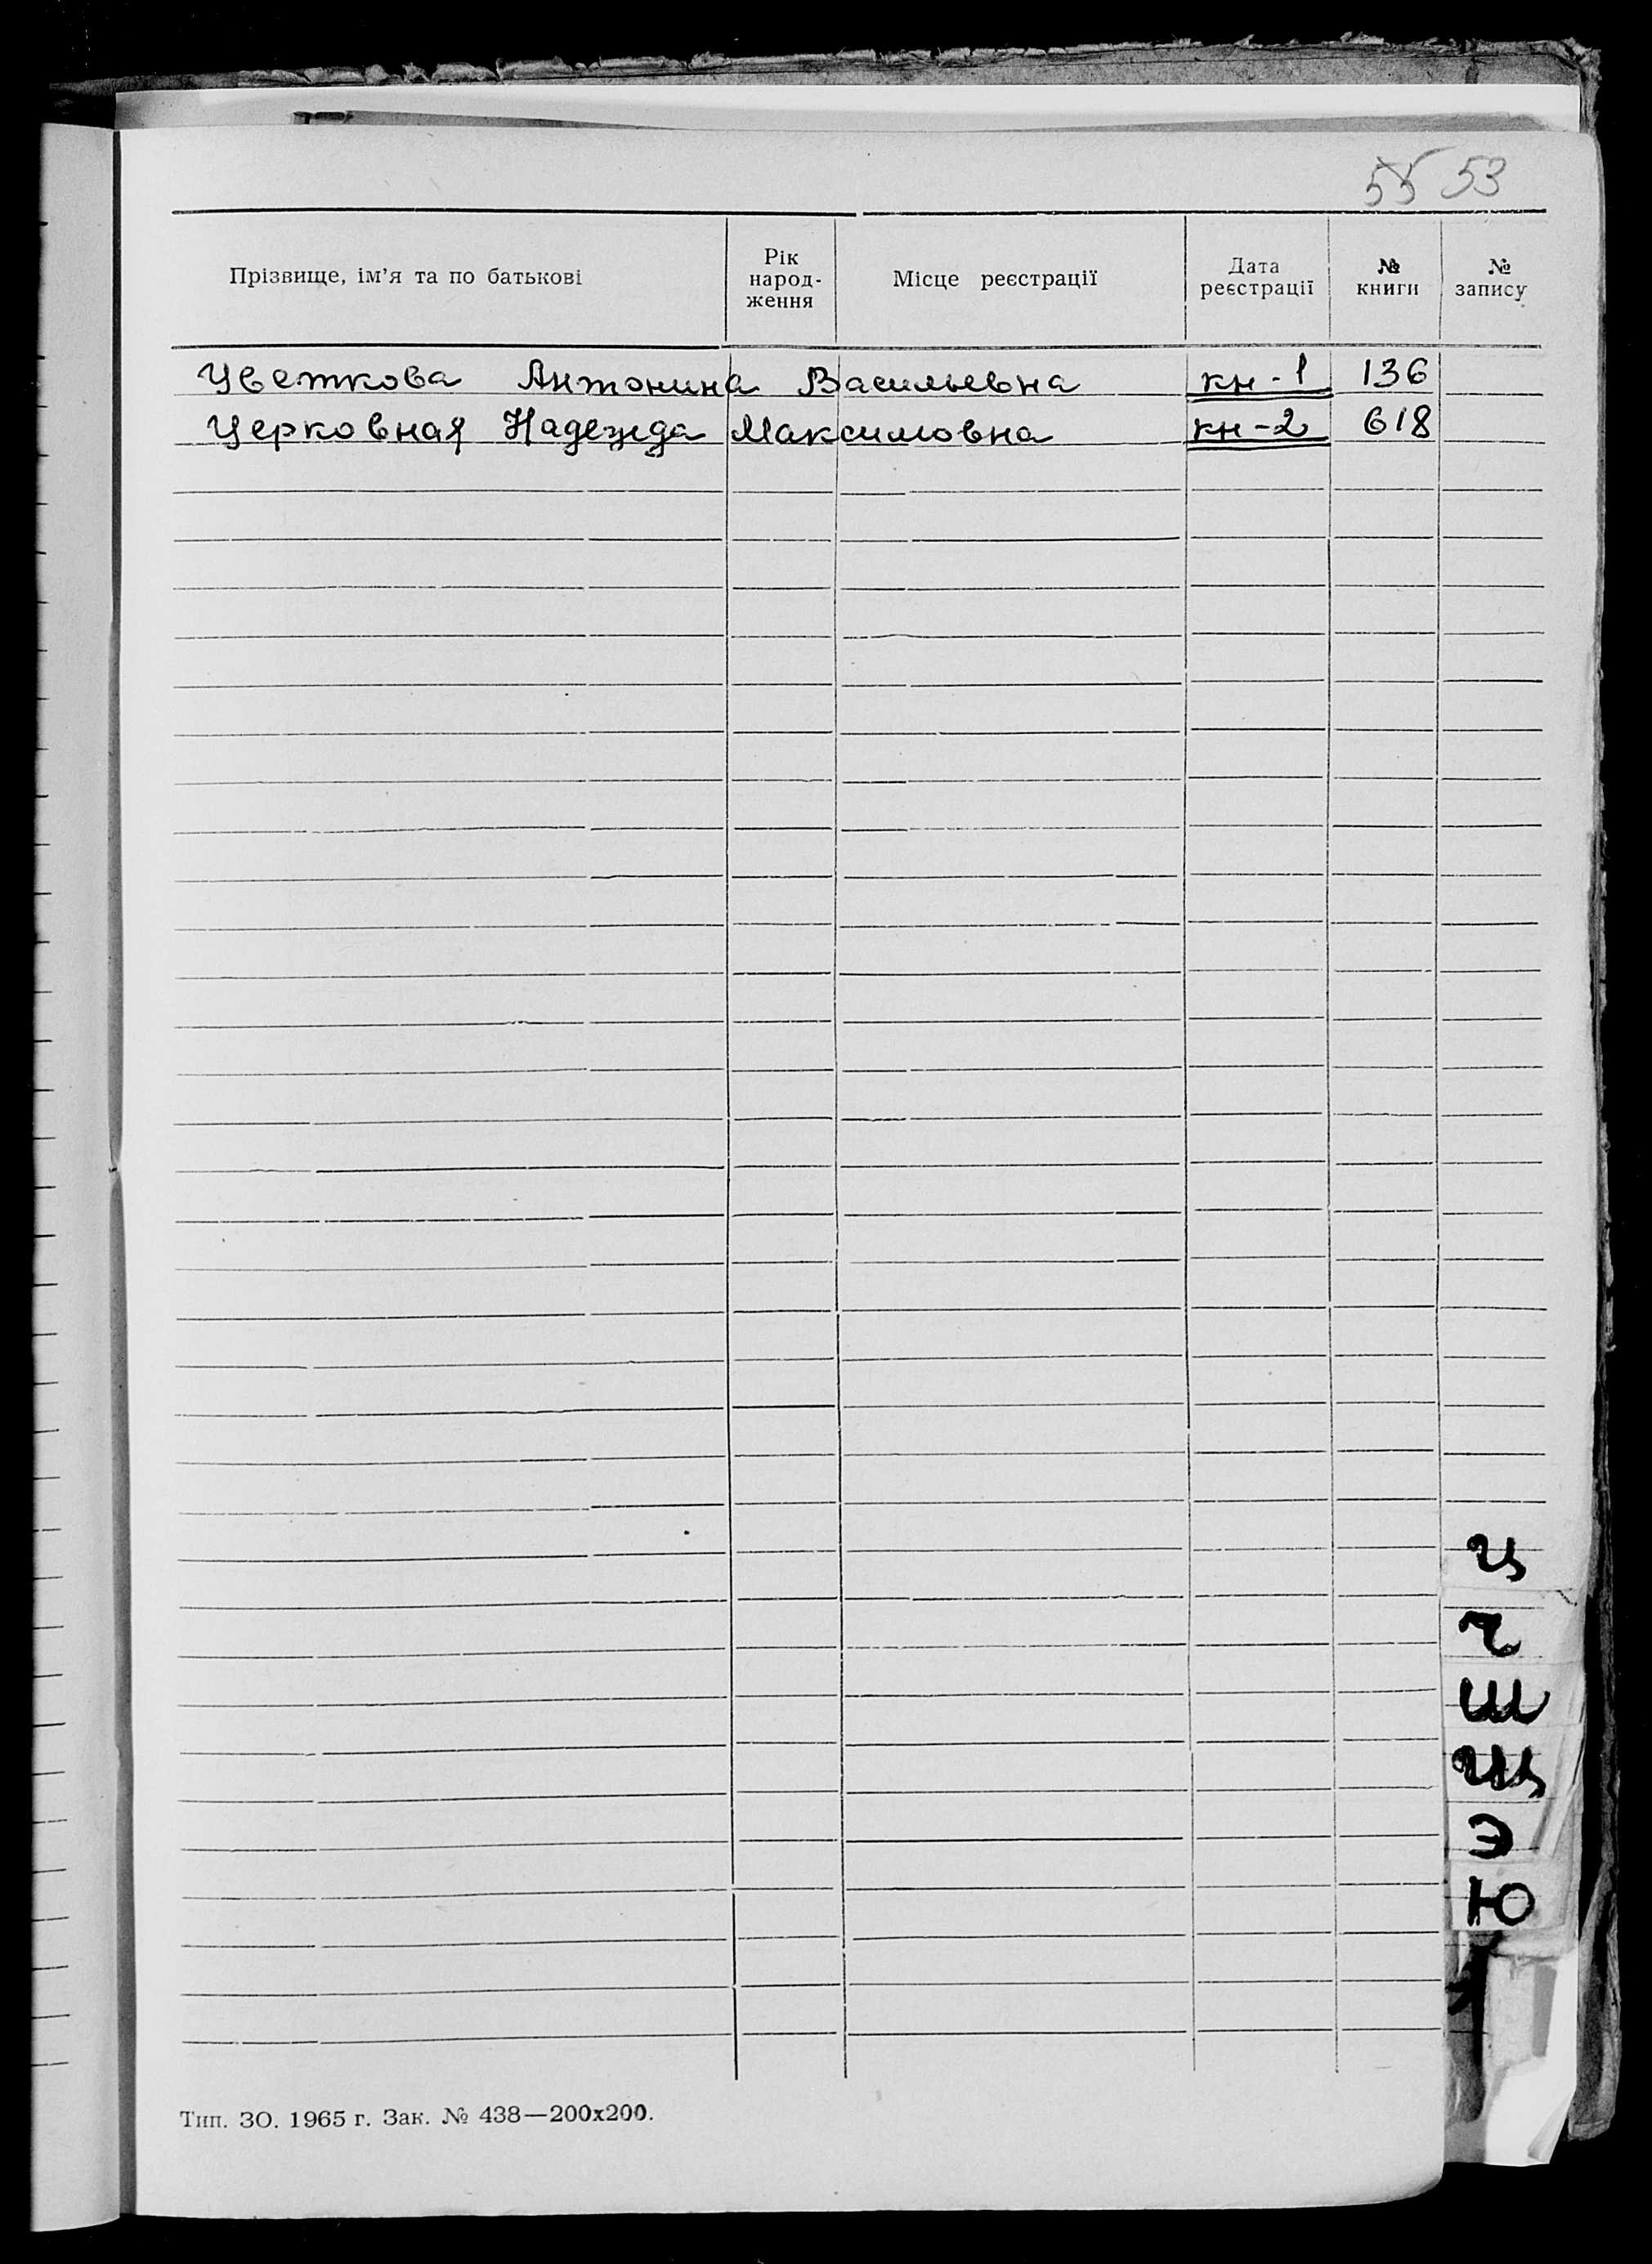 55 53
Прізвище, ім’я та по батькові
Рік
народ-
ження
Місце реєстрації
Дата
реєстрації
№
книги
№
запису
Цветкова Антонина Васильевна кн-1 136
Церковная Надежда Максимовна кн-2 618
ц
ч
ш
щ
э
ю
Тип. ЗО. 1965 г. Зак. № 438—200х200.